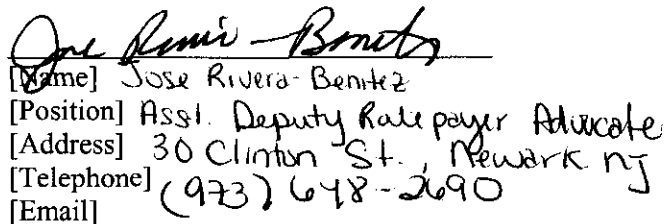 Jose Rivera-Benitez
[Name] Jose Rivera-Benitez
[Position] Asst. Deputy Ratepayer Advocate
[Address] 30 Clinton St., Newark NJ
[Telephone] (973) 648-2690
[Email]